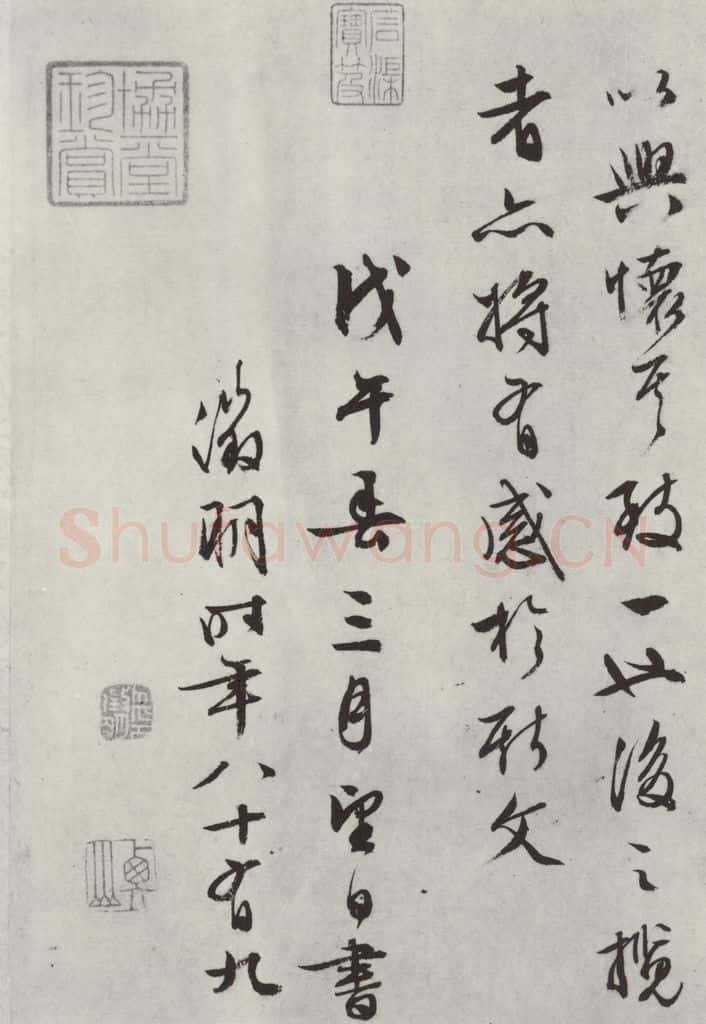 以興懷其致一也後之攬
者亦將有感於斯文
戊午春三月望日書
徵明時年八十有九
Shufawang.CN